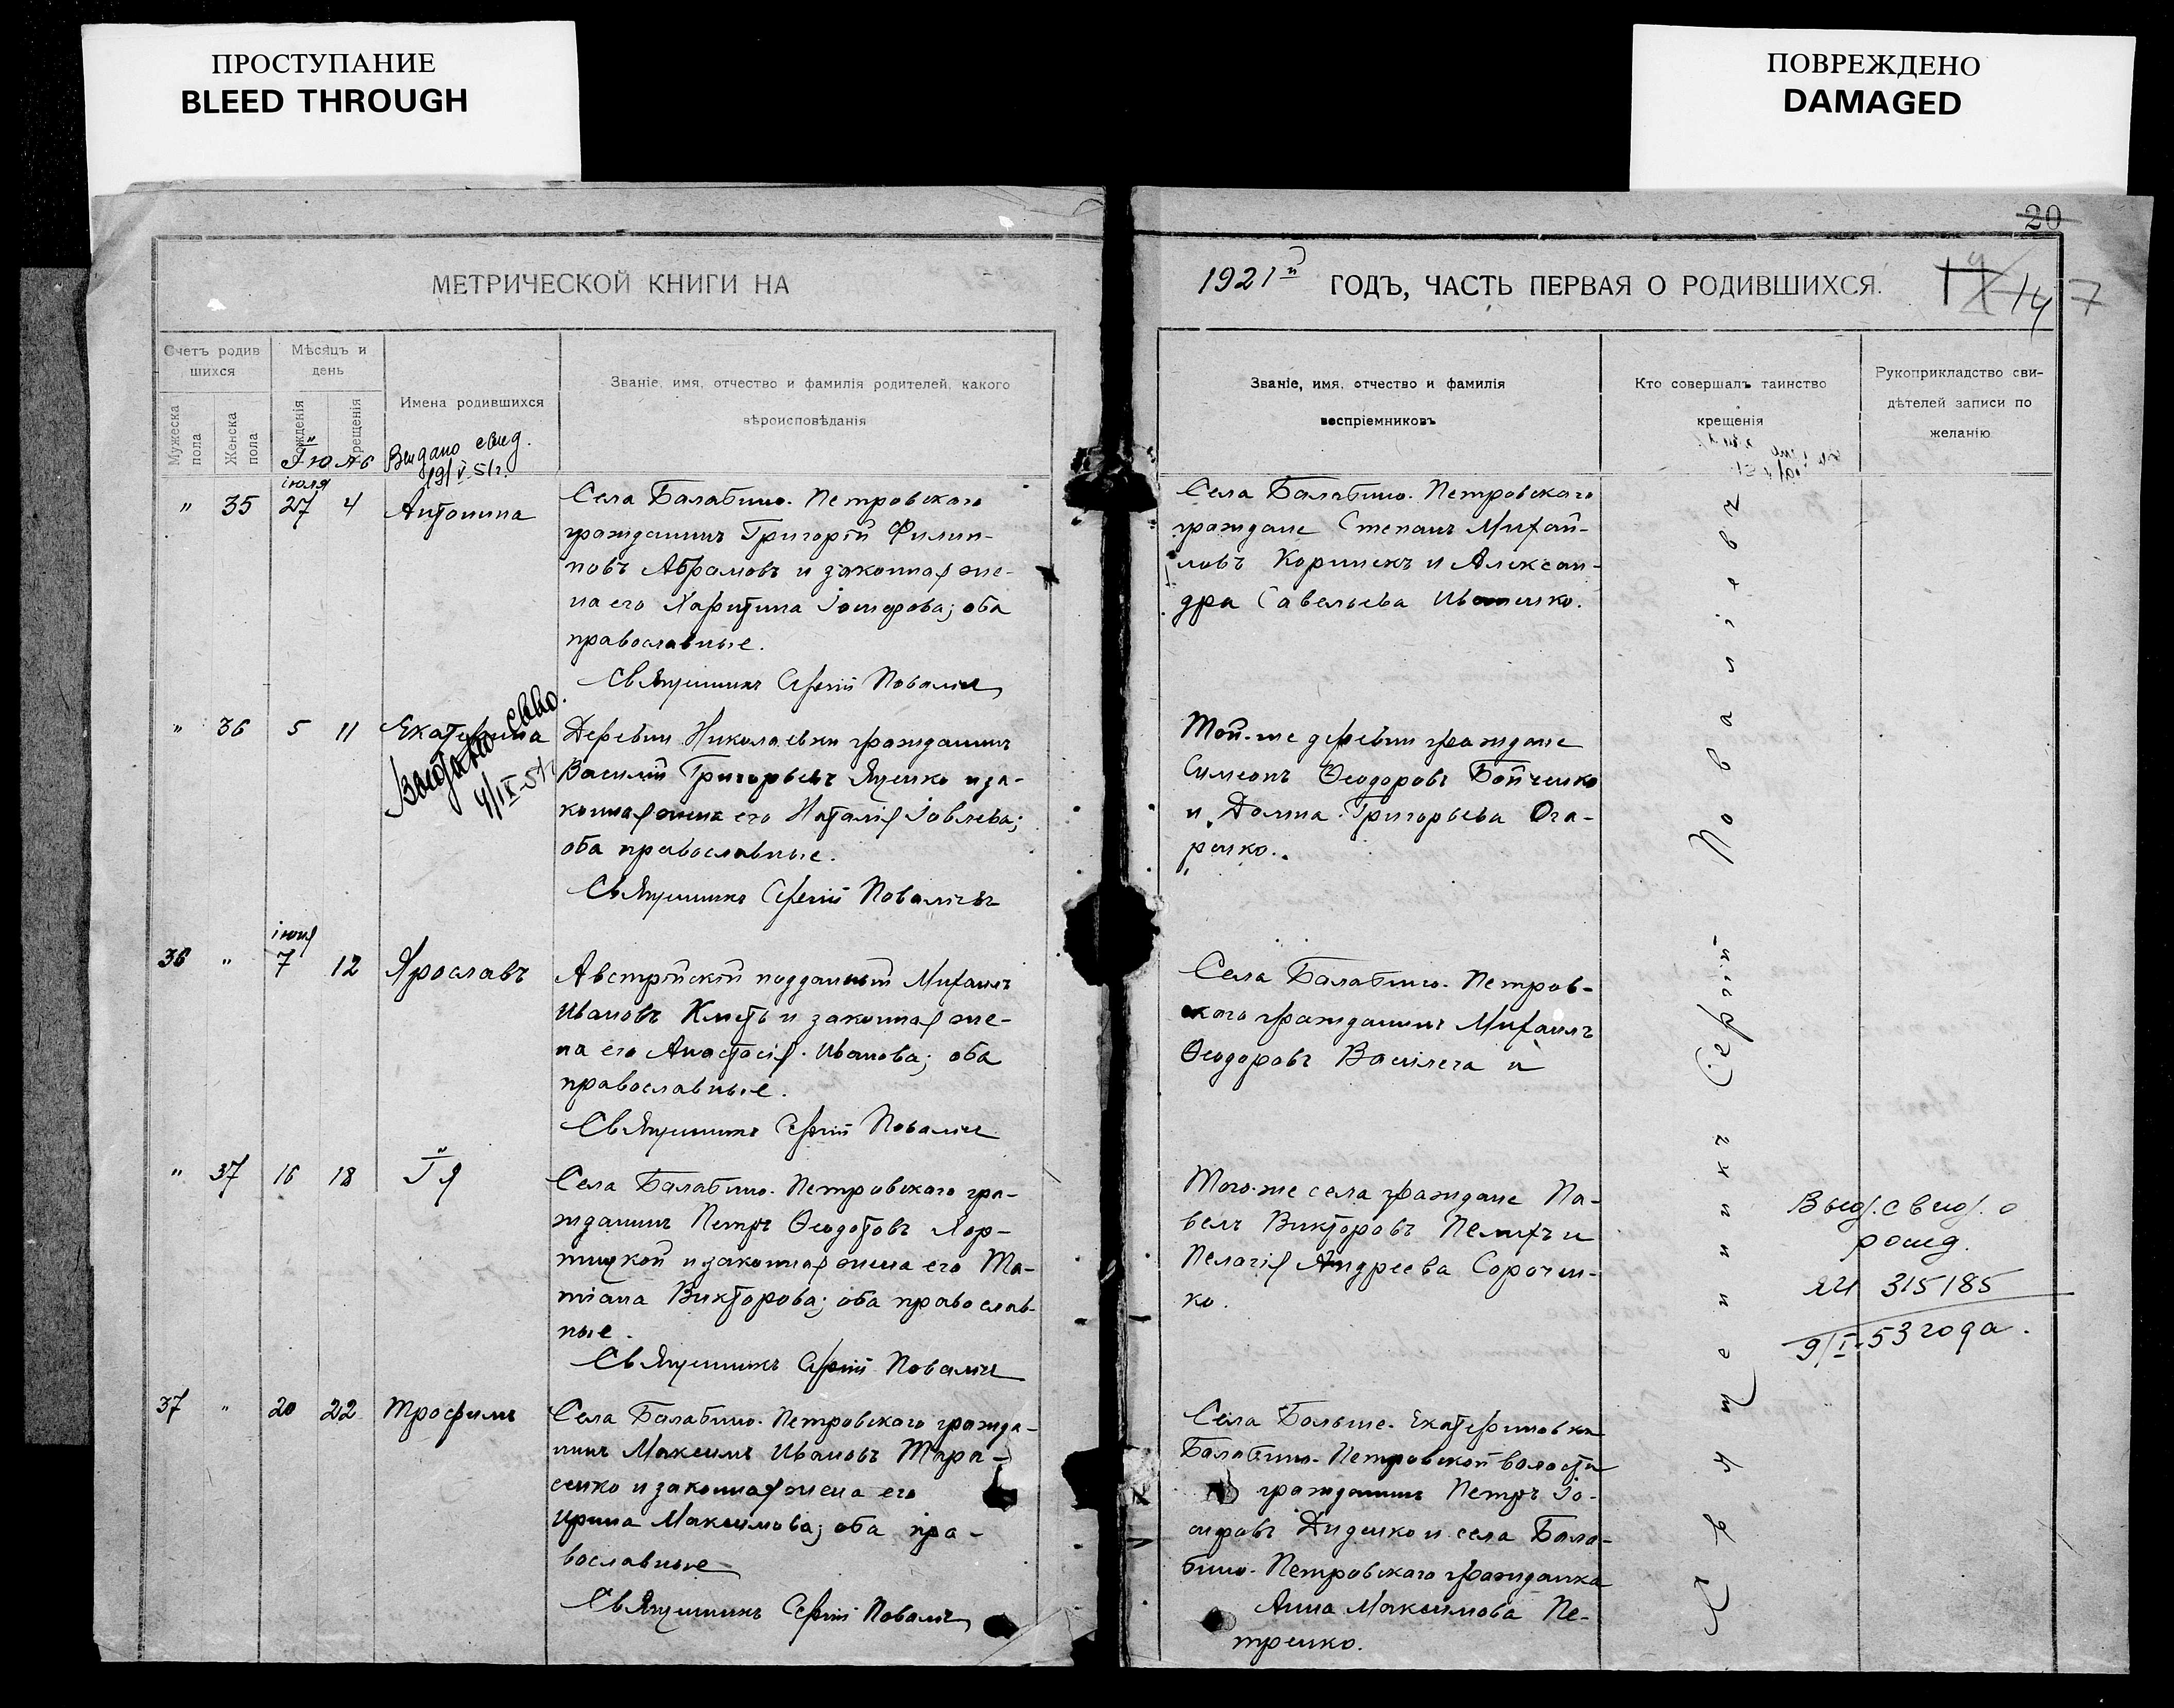 ПРОСТУПАНИЕ
BLEED THROUGH
ПОВРЕЖДЕНО
DAMAGED
20
МЕТРИЧЕСКОЙ КНИГИ НА
1921й ГОДЪ, ЧАСТЬ ПЕРВАЯ О РОДИВШИХСЯ.
14 7
Счетъ родив
шихся
Мужеска пола
Женска пола
Мѣсяцъ и
день
Рожденія
Крещенія
Имена родившихся
Званіе, имя, отчество и фамилія родителей, какого
вѣроисповѣданія
Званіе, имя, отчество и фамилія
воспріемниковъ
Кто совершалъ таинство
крещенія
Рукоприкладство сви-
дѣтелей записи по
желанію
Іюль
Выдано свид.
19/V-51г.
" 35
іюня
27 4
Антонина
Села Балабино-Петровскаго
гражданинъ Григорій Филип-
повъ Абрамовъ и законная же-
на его Харитина Іосифова; оба
православные.
Священникъ Сергій Поваличъ
Села Балабино-Петровскаго
граждане Степанъ Михай-
ловъ Коринекъ и Алексан-
дра Савельева
" 36 5 11
Екатерина
Выдано свид.
4/IX-51г
Деревни Николаевки гражданинъ
Василій Григорьевъ Яценко и за-
конная жена его Наталія Іовлева;
оба православные.
Священникъ Сергій Поваличъ
Той-же деревни граждане
Симеонъ Ѳеодоровъ Бойченко
и Домна Григорьева Ога-
ренко.
36 "
7 12
Ярославъ
Австрійскій подданный Михаилъ
Ивановъ Кметь и законная же-
на его Анастасія Иванова; оба
православные.
Священникъ Сергій Поваличъ
Села Балабино-Петров-
скаго гражданинъ Михаилъ
Ѳеодоровъ Василега и
" 37 16 18
Ія
Села Балабино-Петровскаго гра-
жданинъ Петръ Ѳеодотовъ Хор-
тицкой и законная жена его Та-
тіана Викторова; оба православ-
ные.
Священникъ Сергій Поваличъ
Того-же села граждане Па-
велъ Викторовъ Пелихъ и
Пелагія Андреева Сорочен-
ко.
Выд. свид. о
рожд.
315185
9/I-53 года.
37 " 20 22
Трофимъ
Села Балабино-Петровскаго гражда-
нинъ Максимъ Ивановъ Тара-
сенко и законная жена его
Ирина Максимова; оба пра-
вославные
Священникъ Сергій Поваличъ
Села Больше-Екатериновки
Балабино-Петровской волости
гражданинъ Петръ Іо-
сифовъ Диденко и села Бала-
бино-Петровскаго гражданка
Анна Максимова Пе-
тренко.
Священникъ Сергій Поваличъ